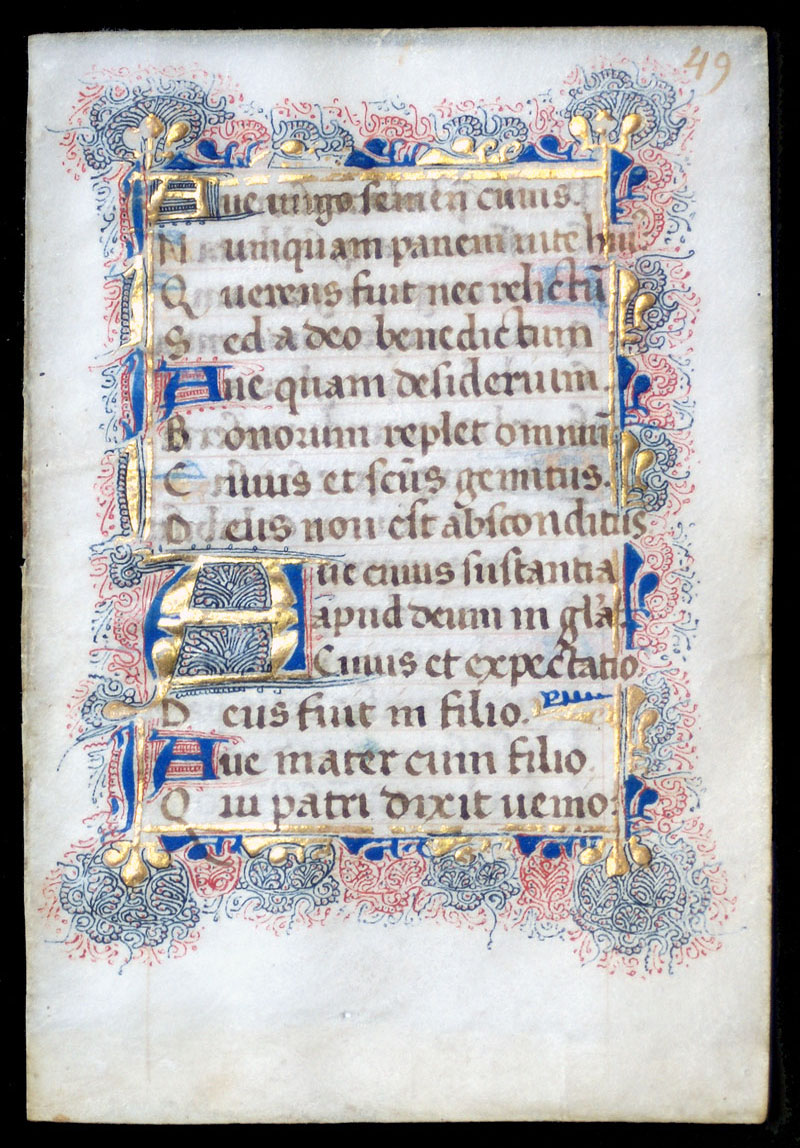 49
Aue uirgo semen cuius.
Numquam panem ante huiꝰ
Querens fuit nec relictū
Sed a deo benedictum
Aue quam desiderium.
Bonorum replet omniū
Cuius et scūs gemitus.
Deus non est absconditus
Aue cuius sustantia
apud deum in gl'a.
Cuius et expectatio
Deus fuit in filio.
Aue mater cum filio.
Qui patri dixit uenio